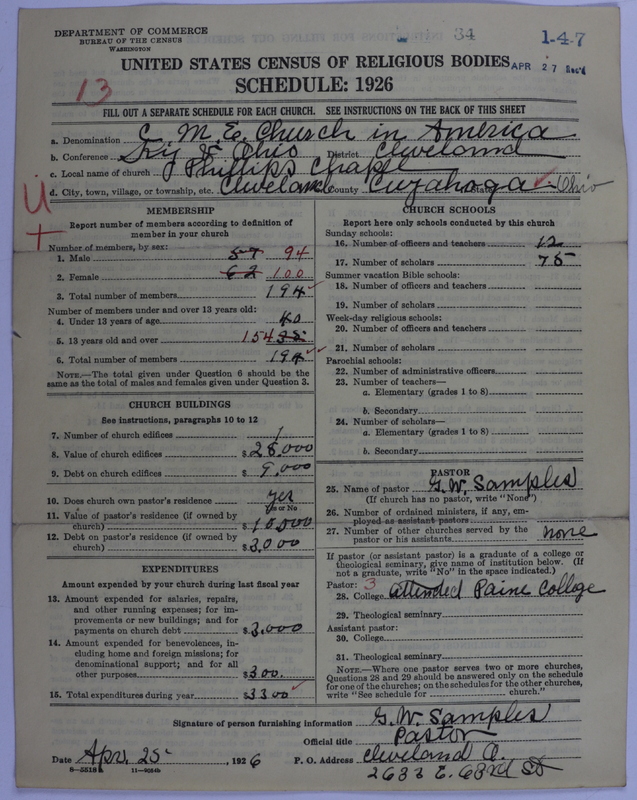 DEPARTMENT OF COMMERCE
BUREAU OF THE CENSUS
WASHINGTON
34
1-4-7
UNITED STATES CENSUS OF RELIGIOUS BODIES
APR 27 Rec'd
SCHEDULE: 1926
13
FILL OUT A SEPARATE SCHEDULE FOR EACH CHURCH. SEE INSTRUCTIONS ON THE BACK OF THIS SHEET
a. Denomination C. M. E. Church in America
b. Conference Ohio District Cleveland
c. Local name of church Phillips Chapel
d. City, town, village, or township, etc. Cleveland County Cuyahoga Ohio
MEMBERSHIP
Report number of members according to definition of
member in your church
Number of members, by sex:
1. Male 57 94
2. Female 62 100
3. Total number of members 194
Number of members under and over 13 years old:
4. Under 13 years of age 40
5. 13 years old and over 154 35
6. Total number of members 194
NOTE.—The total given under Question 6 should be the
same as the total of males and females given under Question 3.
CHURCH BUILDINGS
See instructions, paragraphs 10 to 12
7. Number of church edifices 1
8. Value of church edifices $ 25,000
9. Debt on church edifices $ 9,000
10. Does church own pastor's residence yes
Yes or No
11. Value of pastor's residence (if owned by
church) $ 10,000
12. Debt on pastor's residence (if owned by
church) $ 3,000
EXPENDITURES
Amount expended by your church during last fiscal year
13. Amount expended for salaries, repairs,
and other running expenses; for im-
provements or new buildings; and for
payments on church debt $ 3,000
14. Amount expended for benevolences, in-
cluding home and foreign missions; for
denominational support; and for all
other purposes $ 300.
15. Total expenditures during year $ 3300
CHURCH SCHOOLS
Report here only schools conducted by this church
Sunday schools:
16. Number of officers and teachers 12
17. Number of scholars 75
Summer vacation Bible schools:
18. Number of officers and teachers
19. Number of scholars
Week-day religious schools:
20. Number of officers and teachers
21. Number of scholars
Parochial schools:
22. Number of administrative officers
23. Number of teachers—
a. Elementary (grades 1 to 8)
b. Secondary
24. Number of scholars—
a. Elementary (grades 1 to 8)
b. Secondary
PASTOR
25. Name of pastor G. W. Samples
(If church has no pastor, write "None")
26. Number of ordained ministers, if any, em-
ployed as assistant pastors
27. Number of other churches served by the
pastor or his assistants none
If pastor (or assistant pastor) is a graduate of a college or
theological seminary, give name of institution below. (If
not a graduate, write "No" in the space indicated.)
Pastor: 3
28. College attended Paine College
29. Theological seminary
Assistant pastor:
30. College
31. Theological seminary
NOTE.—Where one pastor serves two or more churches,
Questions 28 and 29 should be answered only on the schedule
for one of the churches; on the schedules for the other churches,
write "See schedule for church."
Signature of person furnishing information G. W. Samples
Official title Pastor
Date Apr. 25, 1926 P. O. Address Cleveland O.
2633 E. 63rd St
8—5518 11—9024b